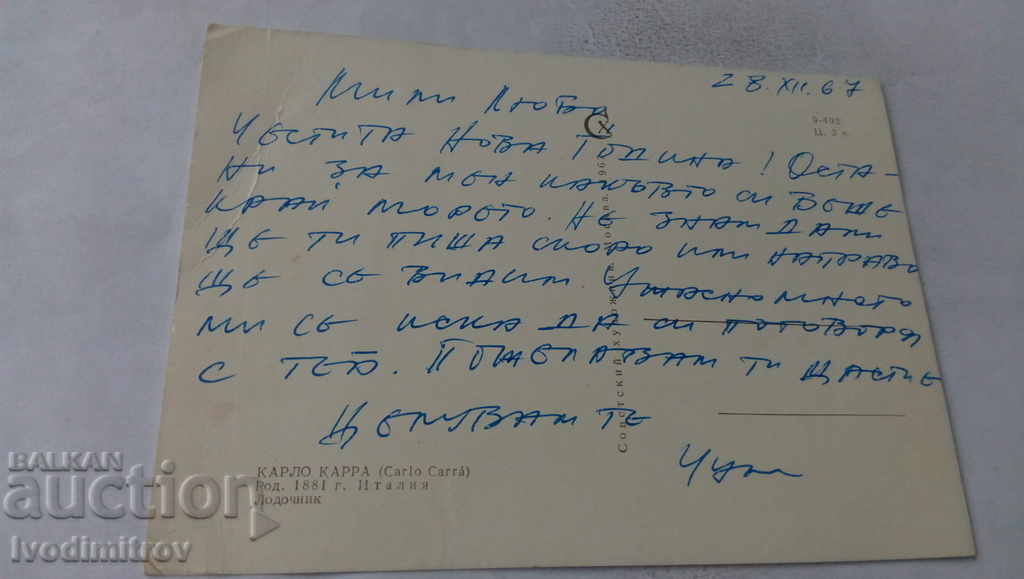 28.XII.67
Мили Любо
Честита Нова Година! Оста-
ни за мен какъвто си беше
край морето. Не знам дали
ще ти пиша скоро или направо
ще се видим. Ужасно много
ми се иска да си поговоря
с теб. Пожелавам ти щастие
Целувам те
9-492
Ц. 3 к.
Советский художник. Москва. 196
КАРЛО КАРРА (Carlo Carrá)
Род. 1881 г. Италия
Лодочник
BALKAN
auction
Ivodimitrov